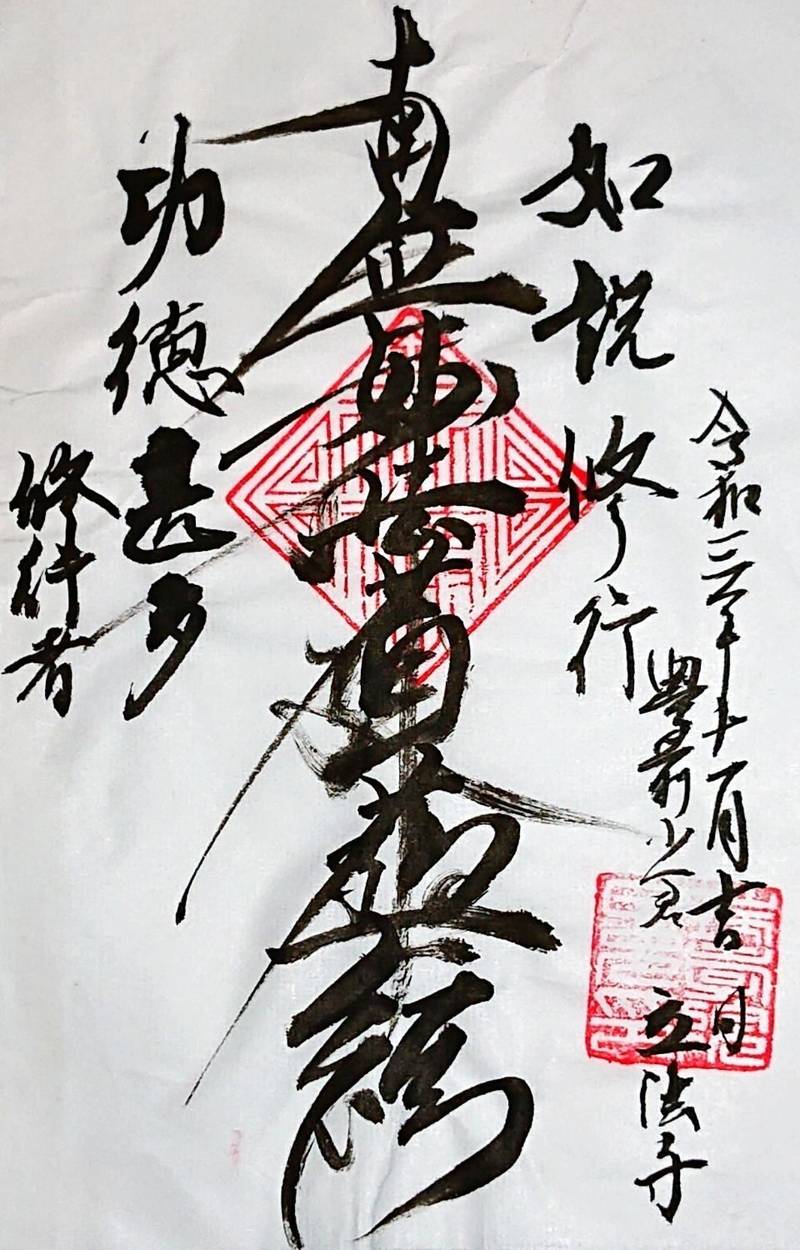 令和三年十一月吉日
豊前小倉 立法寺
如説修行
南無妙法蓮華経
功徳甚多
修行者